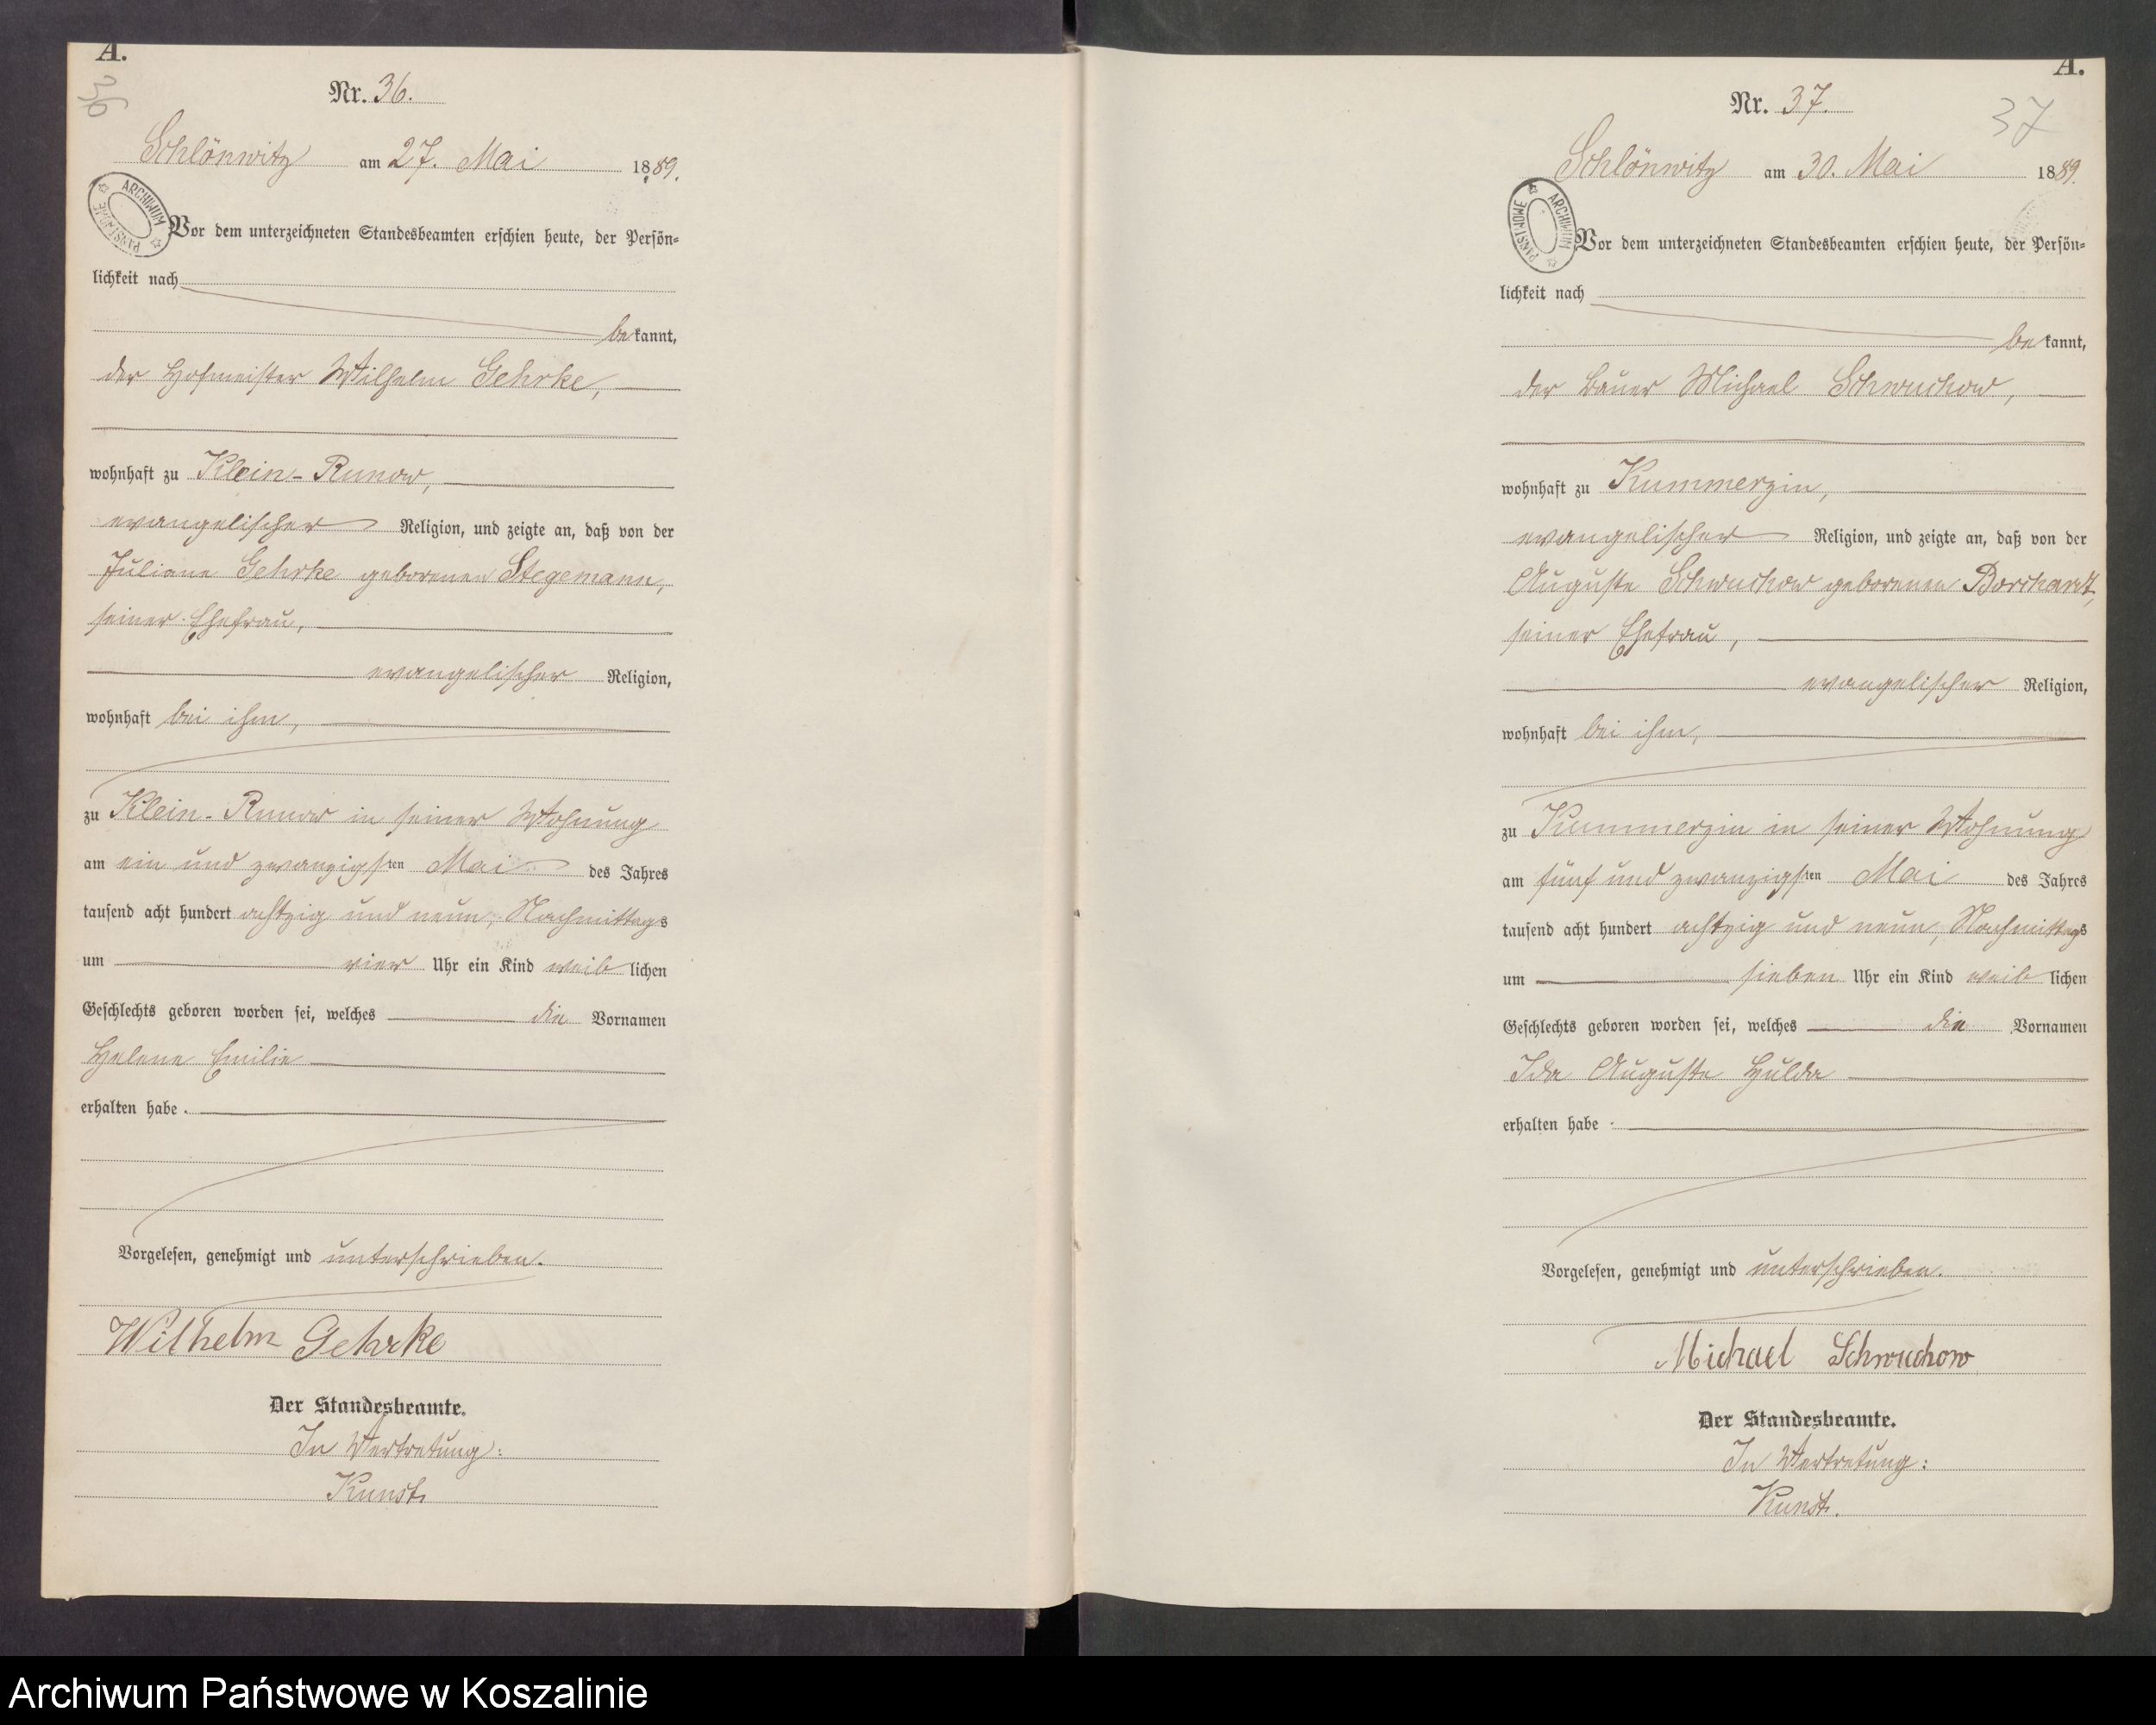 A.
36
Nr. 36.
Schlönwitz am 27. Mai 1889.
ARCHIWUM PAŃSTWOWE
Vor dem unterzeichneten Standesbeamten erschien heute, der Persön=
lichkeit nach
bekannt,
der Hofmeister Wilhelm Gehrke,
wohnhaft zu Klein-Runow,
evangelischer Religion, und zeigte an, daß von der
Juliane Gehrke geborenen Stegemann,
seiner Ehefrau,
evangelischer Religion,
wohnhaft bei ihm,
zu Klein-Runow in seiner Wohnung
am ein und zwanzigsten Mai des Jahres
tausend acht hundert achtzig und neun, Nachmittags
um vier Uhr ein Kind weiblichen
Geschlechts geboren worden sei, welches die Vornamen
Helene Emilie
erhalten habe.
Vorgelesen, genehmigt und unterschrieben.
Wilhelm Gehrke
Der Standesbeamte.
In Vertretung:
Kunst.
A.
37
Nr. 37.
Schlönwitz am 30. Mai 1889.
ARCHIWUM PAŃSTWOWE
Vor dem unterzeichneten Standesbeamten erschien heute, der Persön=
lichkeit nach
bekannt,
der Bauer Michael Schwuchow,
wohnhaft zu Kummerzin,
evangelischer Religion, und zeigte an, daß von der
Auguste Schwuchow geborenen Borchardt,
seiner Ehefrau,
evangelischer Religion,
wohnhaft bei ihm,
zu Kummerzin in seiner Wohnung
am fünf und zwanzigsten Mai des Jahres
tausend acht hundert achtzig und neun, Nachmittags
um sieben Uhr ein Kind weiblichen
Geschlechts geboren worden sei, welches die Vornamen
Ida Auguste Hulda
erhalten habe.
Vorgelesen, genehmigt und unterschrieben.
Michael Schwuchow
Der Standesbeamte.
In Vertretung:
Kunst.
Archiwum Państwowe w Koszalinie